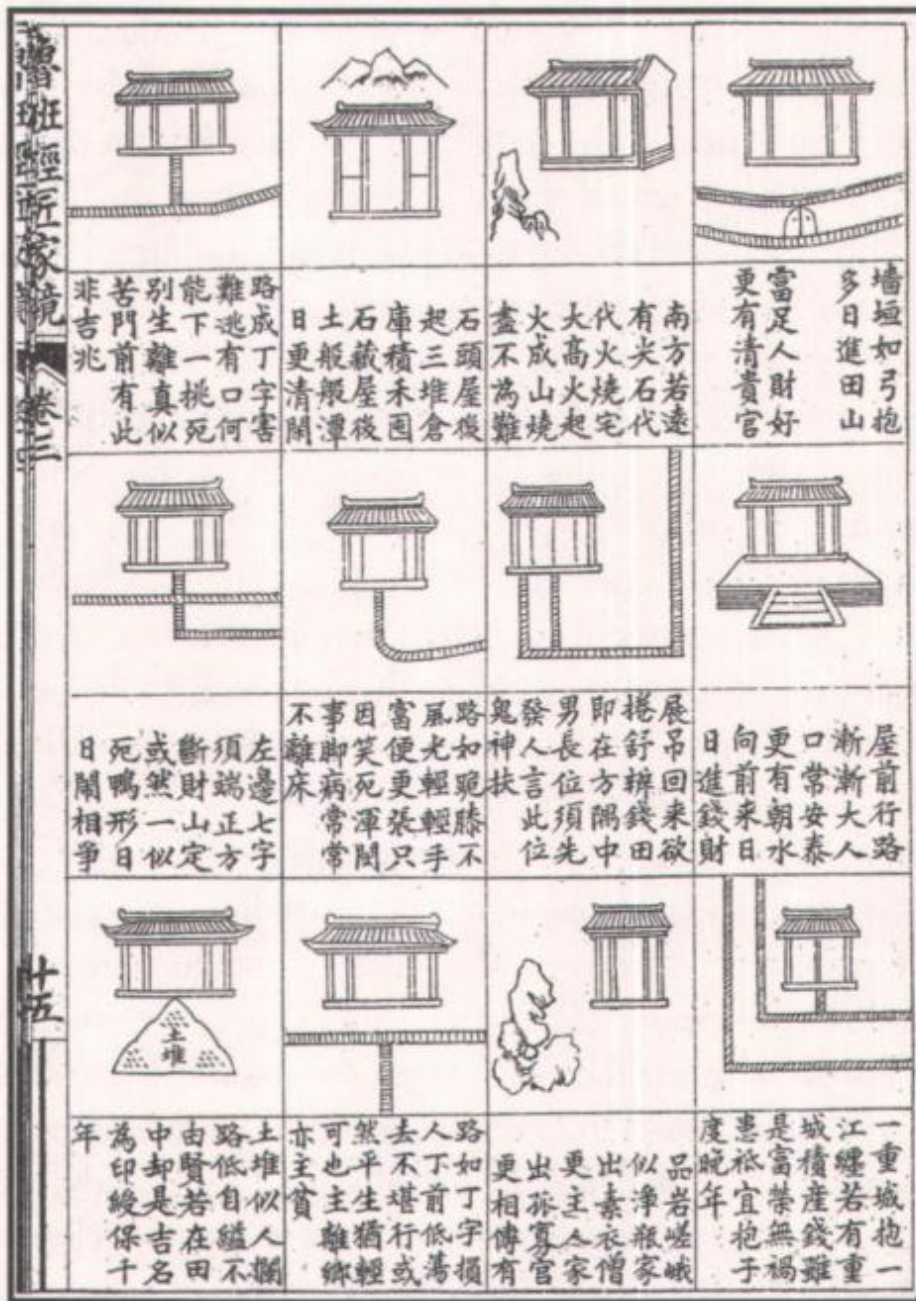 魯班經匠家鏡
卷三
十五
墙垣如弓抱
多日進田山
當足人財好
更有清貴官
南方若遠
有尖石代
代火燒宅
大高火起
火成山燒
盡不為難
石頭屋後
起三堆倉
庫積禾囤
石藏屋後
土般般潭
日更清閑
路成丁字害
難逃有口何
能下一挑死
別生離真似
苦門前有此
非吉兆
屋前行路
漸漸大人
口常安泰
更有朝水
向前来日
日進錢財
展吊回来欲
捲舒辨錢田
即在方隅中
男長位須先
發人言此位
鬼神扶
路如跪膝不
風光輕輕手
富便更張只
因笑死渾閑
事脚病常常
不離床
左邊七字
須端正方
斷財山定
或然一似
死鴨形日
日鬧相爭
一重城抱一
江纏若有重
城積産錢雖
是富榮無禍
患祗宜抱子
度晚年
品岩嵯峨
似淨瓶家
出素衣僧
更主人家
出孤寡官
更相傳有
路如丁字損
人丁前低蕩
去不堪行或
然平生猶輕
可也主離鄉
亦主貧
土堆
土堆似人攔
路低自縊不
由賢若在田
中却是吉名
為印綬保千
年